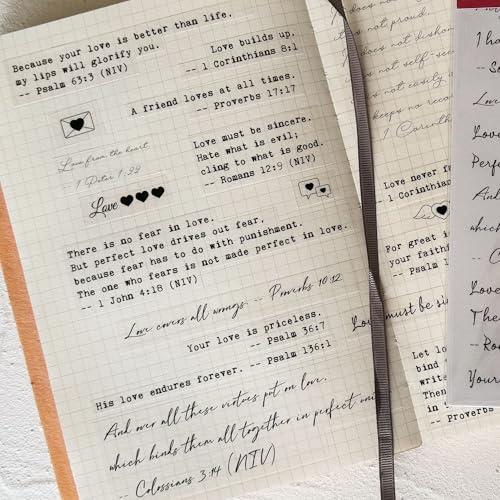 Because your love is better than life,
my lips will glorify you.
-- Psalm 63:3 (NIV)
Love builds up.
-- 1 Corinthians 8:1
A friend loves at all times.
-- Proverbs 17:17
Love from the heart.
1 Peter 1:22
Love must be sincere.
Hate what is evil;
cling to what is good.
-- Romans 12:9 (NIV)
Love
There is no fear in love.
But perfect love drives out fear,
because fear has to do with punishment.
The one who fears is not made perfect in love.
-- 1 John 4:18 (NIV)
Love covers all wrongs. -- Proverbs 10:12
Your love is priceless.
-- Psalm 36:7
His love endures forever. -- Psalm 136:1
And over all these virtues put on love,
which binds them all together in perfect
-- Colossians 3:14 (NIV)
it's not proud.
It does not
is not
keeps no
1 Corinth
Love never
1 Corinthians
For great i
your faithf
-- Psalm 1
Love must be si
Let lo
bind t
write
Then
-- Proverbs
I ha
-- Se
Love
Love
Perfe
And
which
-- C
Love
The
-- Ro
Your